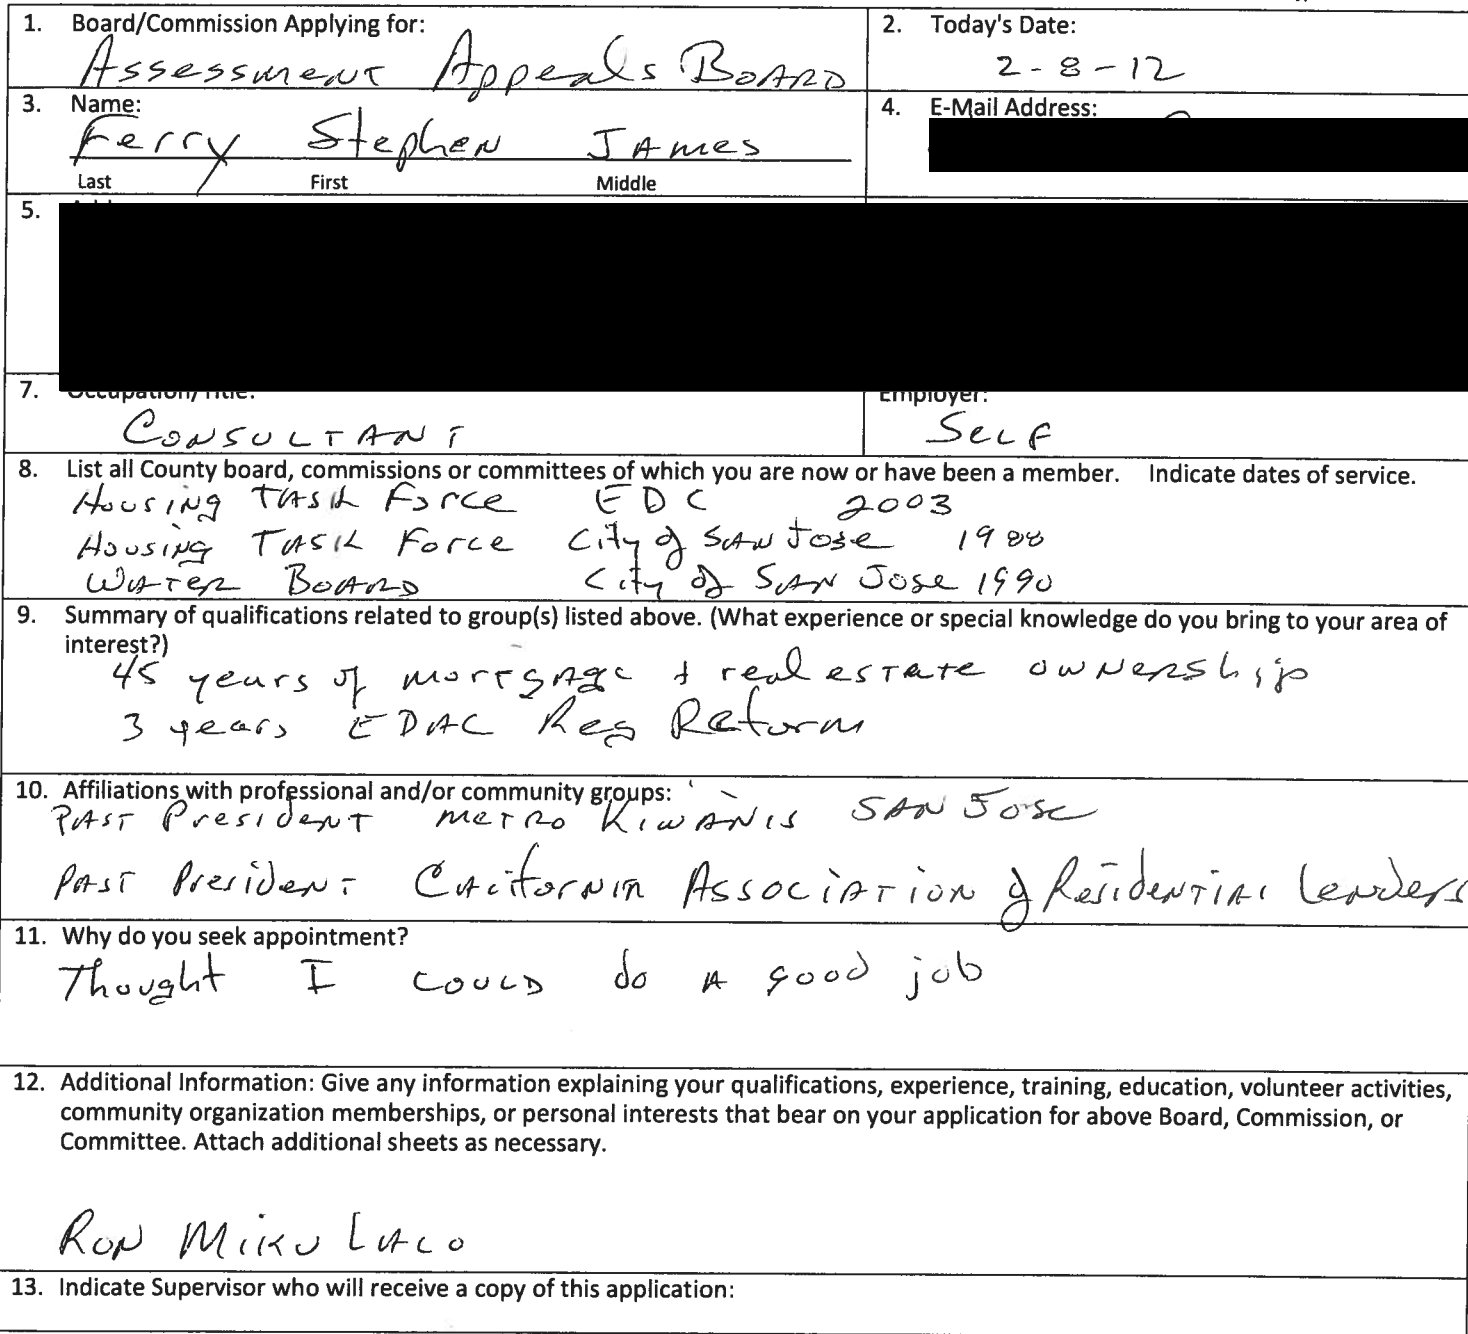 1. Board/Commission Applying for:
Assessment Appeals Board
2. Today's Date:
2-8-12
3. Name:
Ferry Stephen James
Last First Middle
4. E-Mail Address:
5.
7. Occupation/Title:
Consultant
Employer:
Self
8. List all County board, commissions or committees of which you are now or have been a member. Indicate dates of service.
Housing Task Force EDC 2003
Housing Task Force City of San Jose 1988
Water Board City of San Jose 1990
9. Summary of qualifications related to group(s) listed above. (What experience or special knowledge do you bring to your area of
interest?)
45 years of mortgage + real estate ownership
3 years EDAC Reg Reform
10. Affiliations with professional and/or community groups:
Past President Metro Kiwanis San Jose
Past President California Association of Residential Lenders
11. Why do you seek appointment?
Thought I could do a good job
12. Additional Information: Give any information explaining your qualifications, experience, training, education, volunteer activities,
community organization memberships, or personal interests that bear on your application for above Board, Commission, or
Committee. Attach additional sheets as necessary.
Ron Mikulaco
13. Indicate Supervisor who will receive a copy of this application: